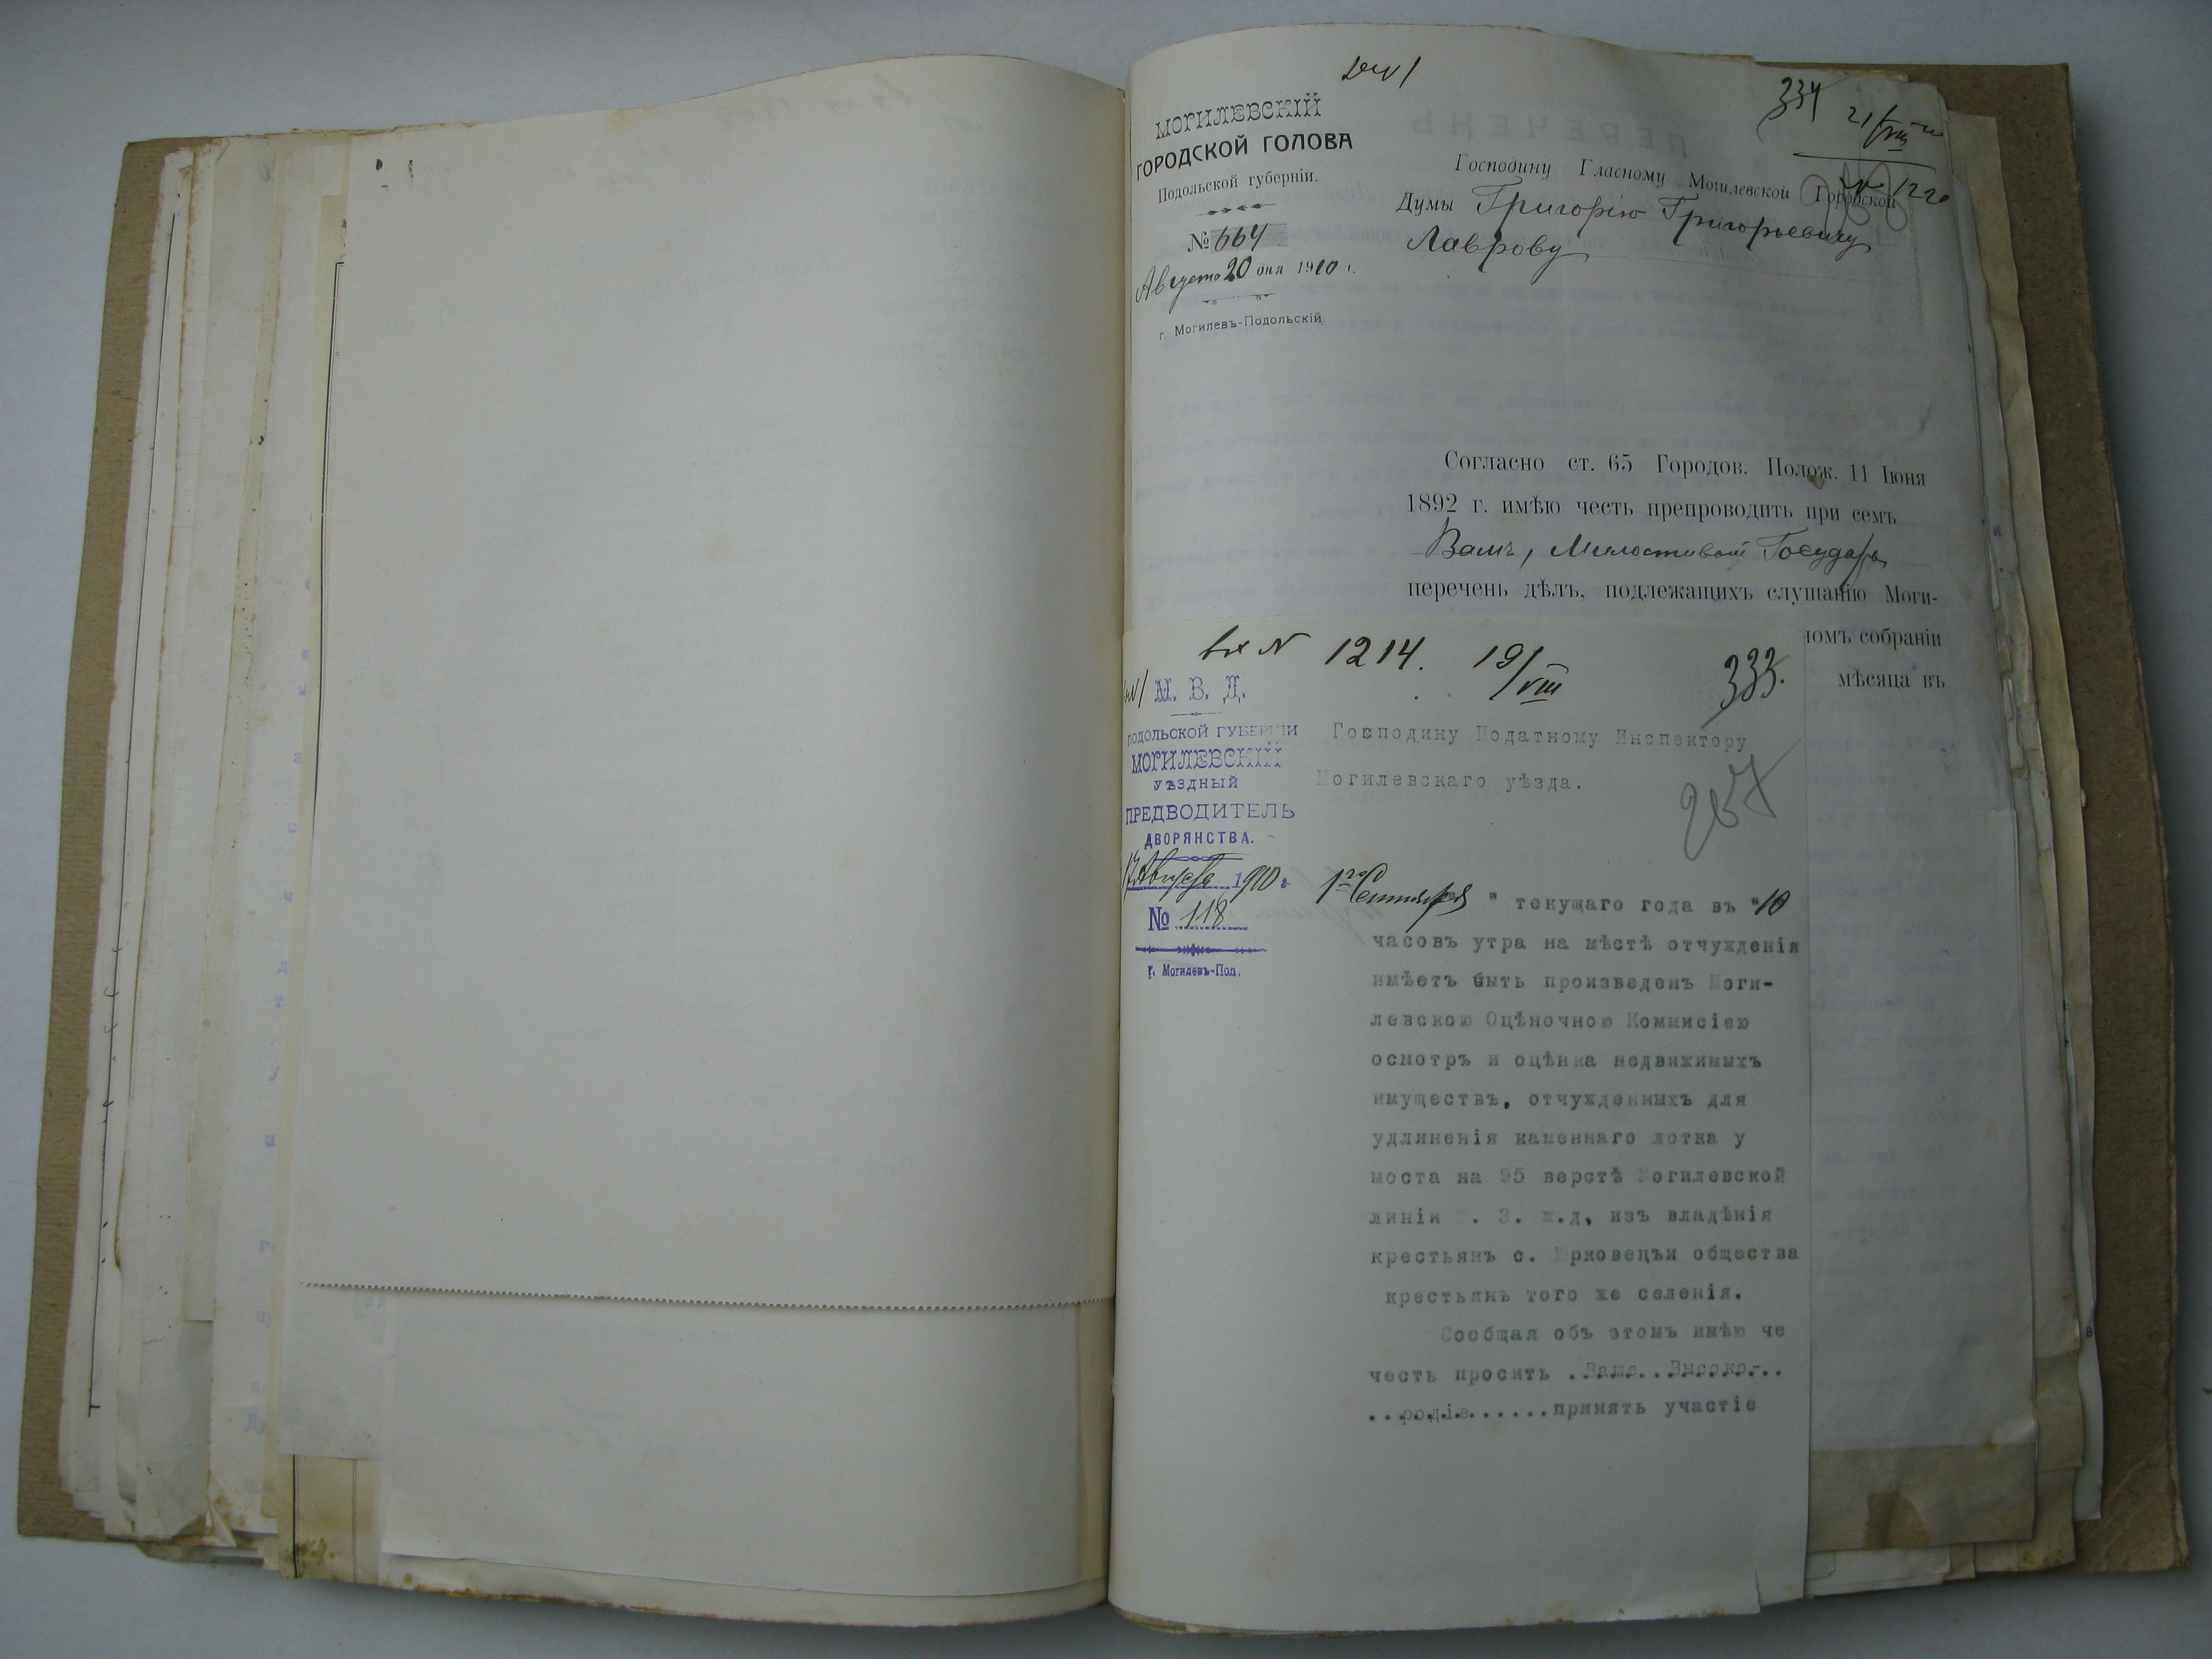 334
21/VIII
№ 1220
МОГИЛЕВСКІЙ
ГОРОДСКОЙ ГОЛОВА
Подольской губерніи.
№ 664
Августа 20 дня 1910 г.
г. Могилевъ-Подольскій.
Господину Гласному Могилевской Городской
Думы Григорію Григорьевичу
Лаврову
Согласно ст. 65 Городов. Полож. 11 Іюня
1892 г. имѣю честь препроводить при семъ
Вамъ, Милостивый Государь
перечень дѣлъ, подлежащихъ слушанію Моги-
номъ собраніи
мѣсяца въ
вх N 1214. 19/VIII
333.
М. В. Д.
ПОДОЛЬСКОЙ ГУБЕРНІИ
МОГИЛЕВСКІЙ
УѢЗДНЫЙ
ПРЕДВОДИТЕЛЬ
ДВОРЯНСТВА.
17 Августа 1910 г.
№ 118
г. Могилевъ-Под.
Господину Податному Инспектору
Могилевскаго уѣзда.
257
1го Сентября " текущаго года въ "10
часовъ утра на мѣстѣ отчужденія
имѣетъ быть произведенъ Моги-
левскою Оцѣночною Коммисіею
осмотръ и оцѣнка недвижимыхъ
имуществъ, отчужденныхъ для
удлиненія каменнаго лотка у
моста на 95 верстѣ Могилевской
линіи З. ж.д, изъ владѣнія
крестьянъ с. общества
крестьянъ того же селенія.
Сообщая объ этомъ имѣю че
честь просить ..Ваше..Высоко-..
...родіе......принять участіе